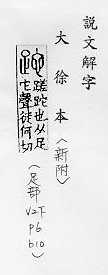 説文解字
大徐本（新附）
跎 蹉跎也从足
它聲徒何切
（足部
V2下
P6
b10）